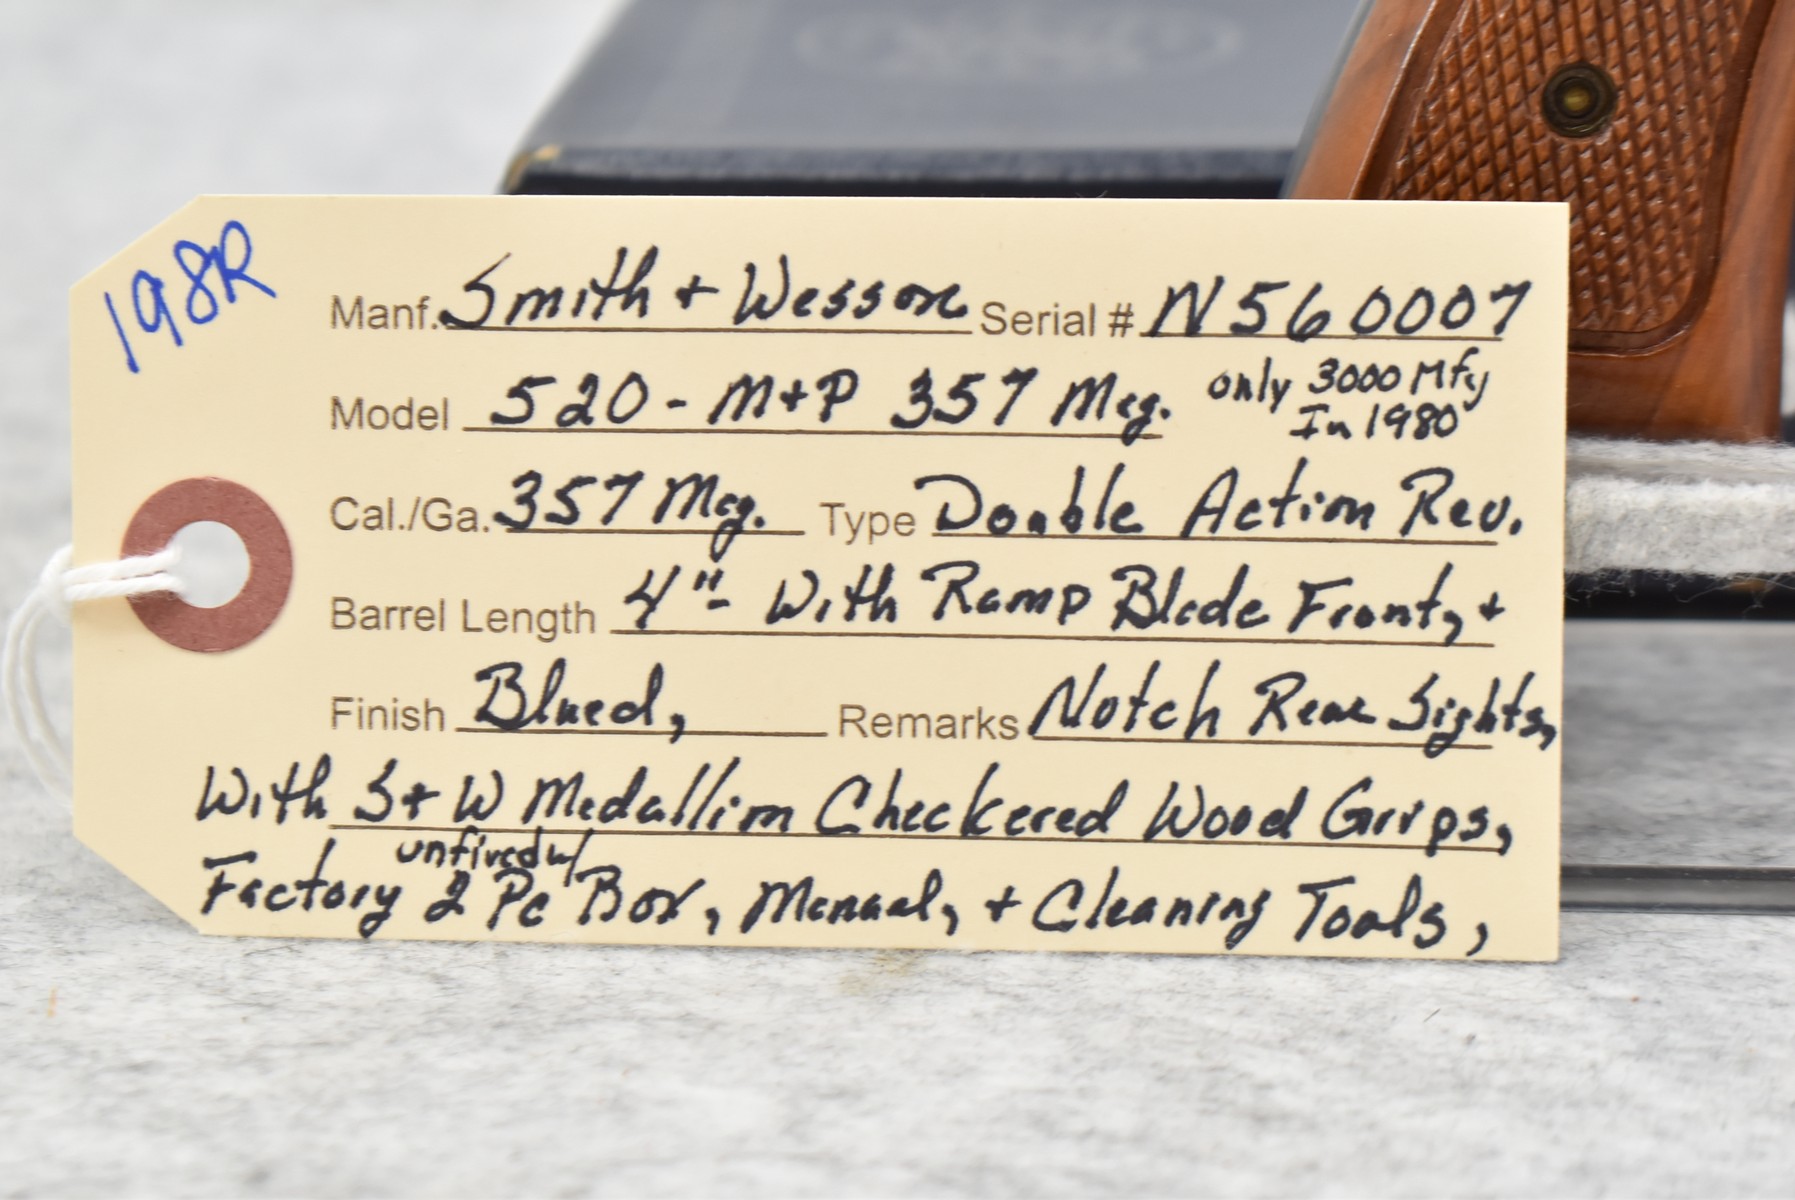 198R
Manf. Smith + Wesson Serial # N560007
Model 520 - M+P 357 Mag. only 3000 Mfg
In 1980
Cal./Ga. 357 Mag. Type Double Action Rev.
Barrel Length 4"- With Ramp Blade Front, +
Finish Blued, Remarks Notch Rear Sights,
With S+W Medallion Checkered Wood Grips,
unfired w/
Factory 2 Pc Box, Manual, + Cleaning Tools,